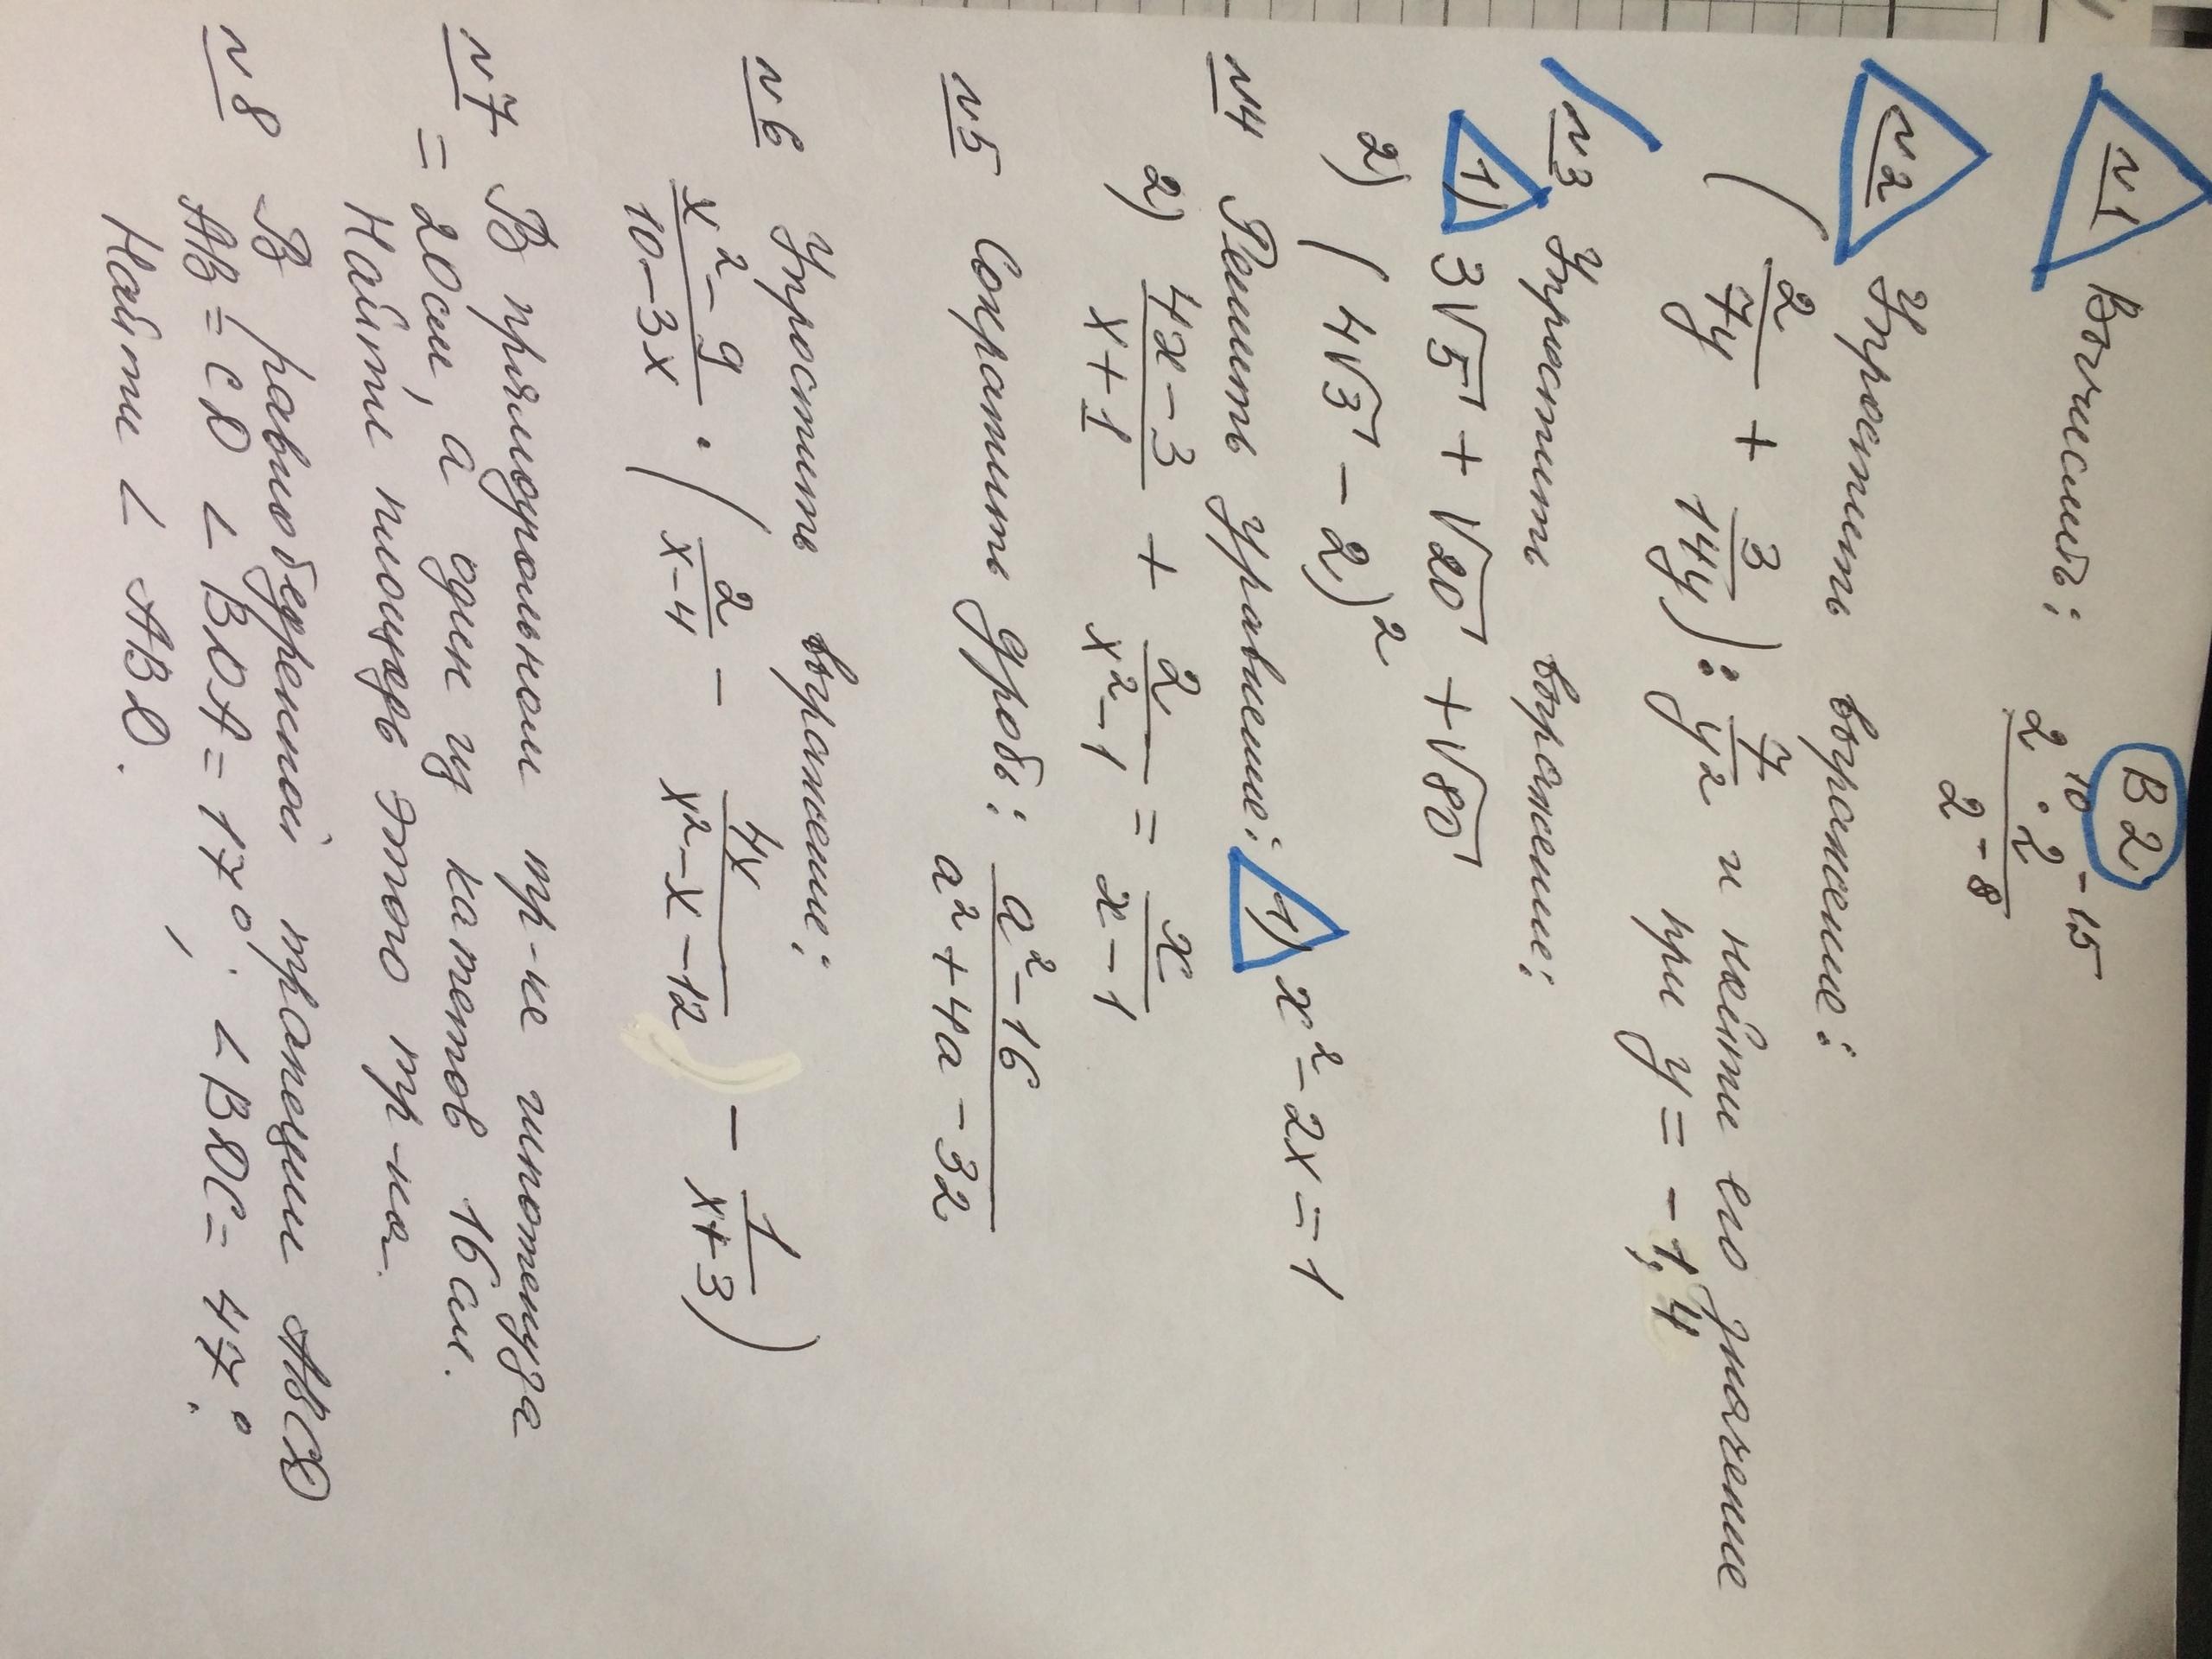 В2
№1 Вычислить: (2^10 · 2^-15) / 2^-8
№2 Упростить выражение:
(2/7y + 3/14y) : 7/y² и найти его значение
при y = -1,4
№3 Упростить выражение:
1) 3√5 + √20 + √80
2) (4√3 - 2)²
№4 Решить уравнение: 1) x² - 2x = 1
2) (4x - 3)/(x + 1) + 2/(x² - 1) = x/(x - 1)
№5 Сократить дробь: (a² - 16)/(a² + 4a - 32)
№6 Упростить выражение:
(x² - 9)/(10 - 3x) · (2/(x - 4) - 4x/(x² - x - 12) - 1/(x + 3))
№7 В прямоугольном тр-ке гипотенуза
= 20см, а один из катетов 16см.
Найти площадь этого тр-ка.
№8 В равнобедренной трапеции ABCD
AB = CD ∠BDA = 17°; ∠BDC = 47°;
Найти ∠ABD.